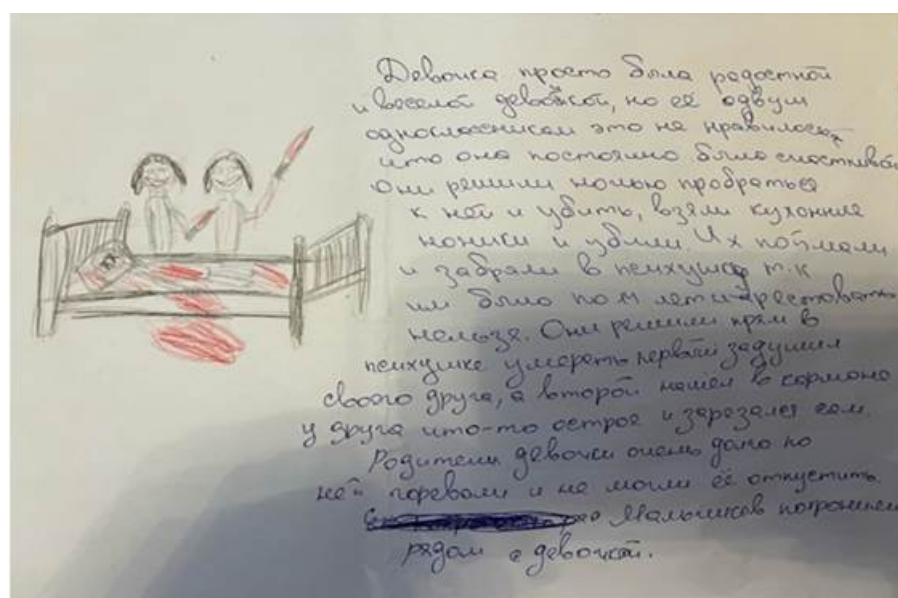 Девочка просто была радостной
и веселой девочкой, но её одвум
одноклассникам это не нравилось
что она постоянно была счастливой
Они решили ночью пробраться
к ней и убить, взяли кухонные
ножики и убили. Их поймали
и забрали в психушку т.к
им было по лет и арестовать
нельзя. Они решили прям в
психушке умереть первый задушил
своего друга, а второй нашёл в кармане
у друга что-то острое и зарезался сам.
Родители девочки очень долго по
ней горевали и не могли её отпустить.
Мальчиков похоронили
рядом с девочкой.